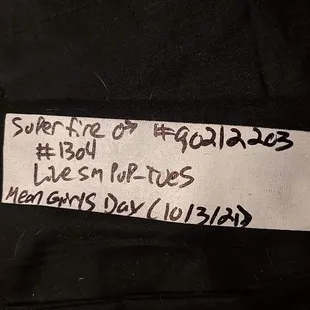 Superfire ♂ #90212203
#1304
Live Sm PuP-Tues
Mean Girls Day (10/3/21)